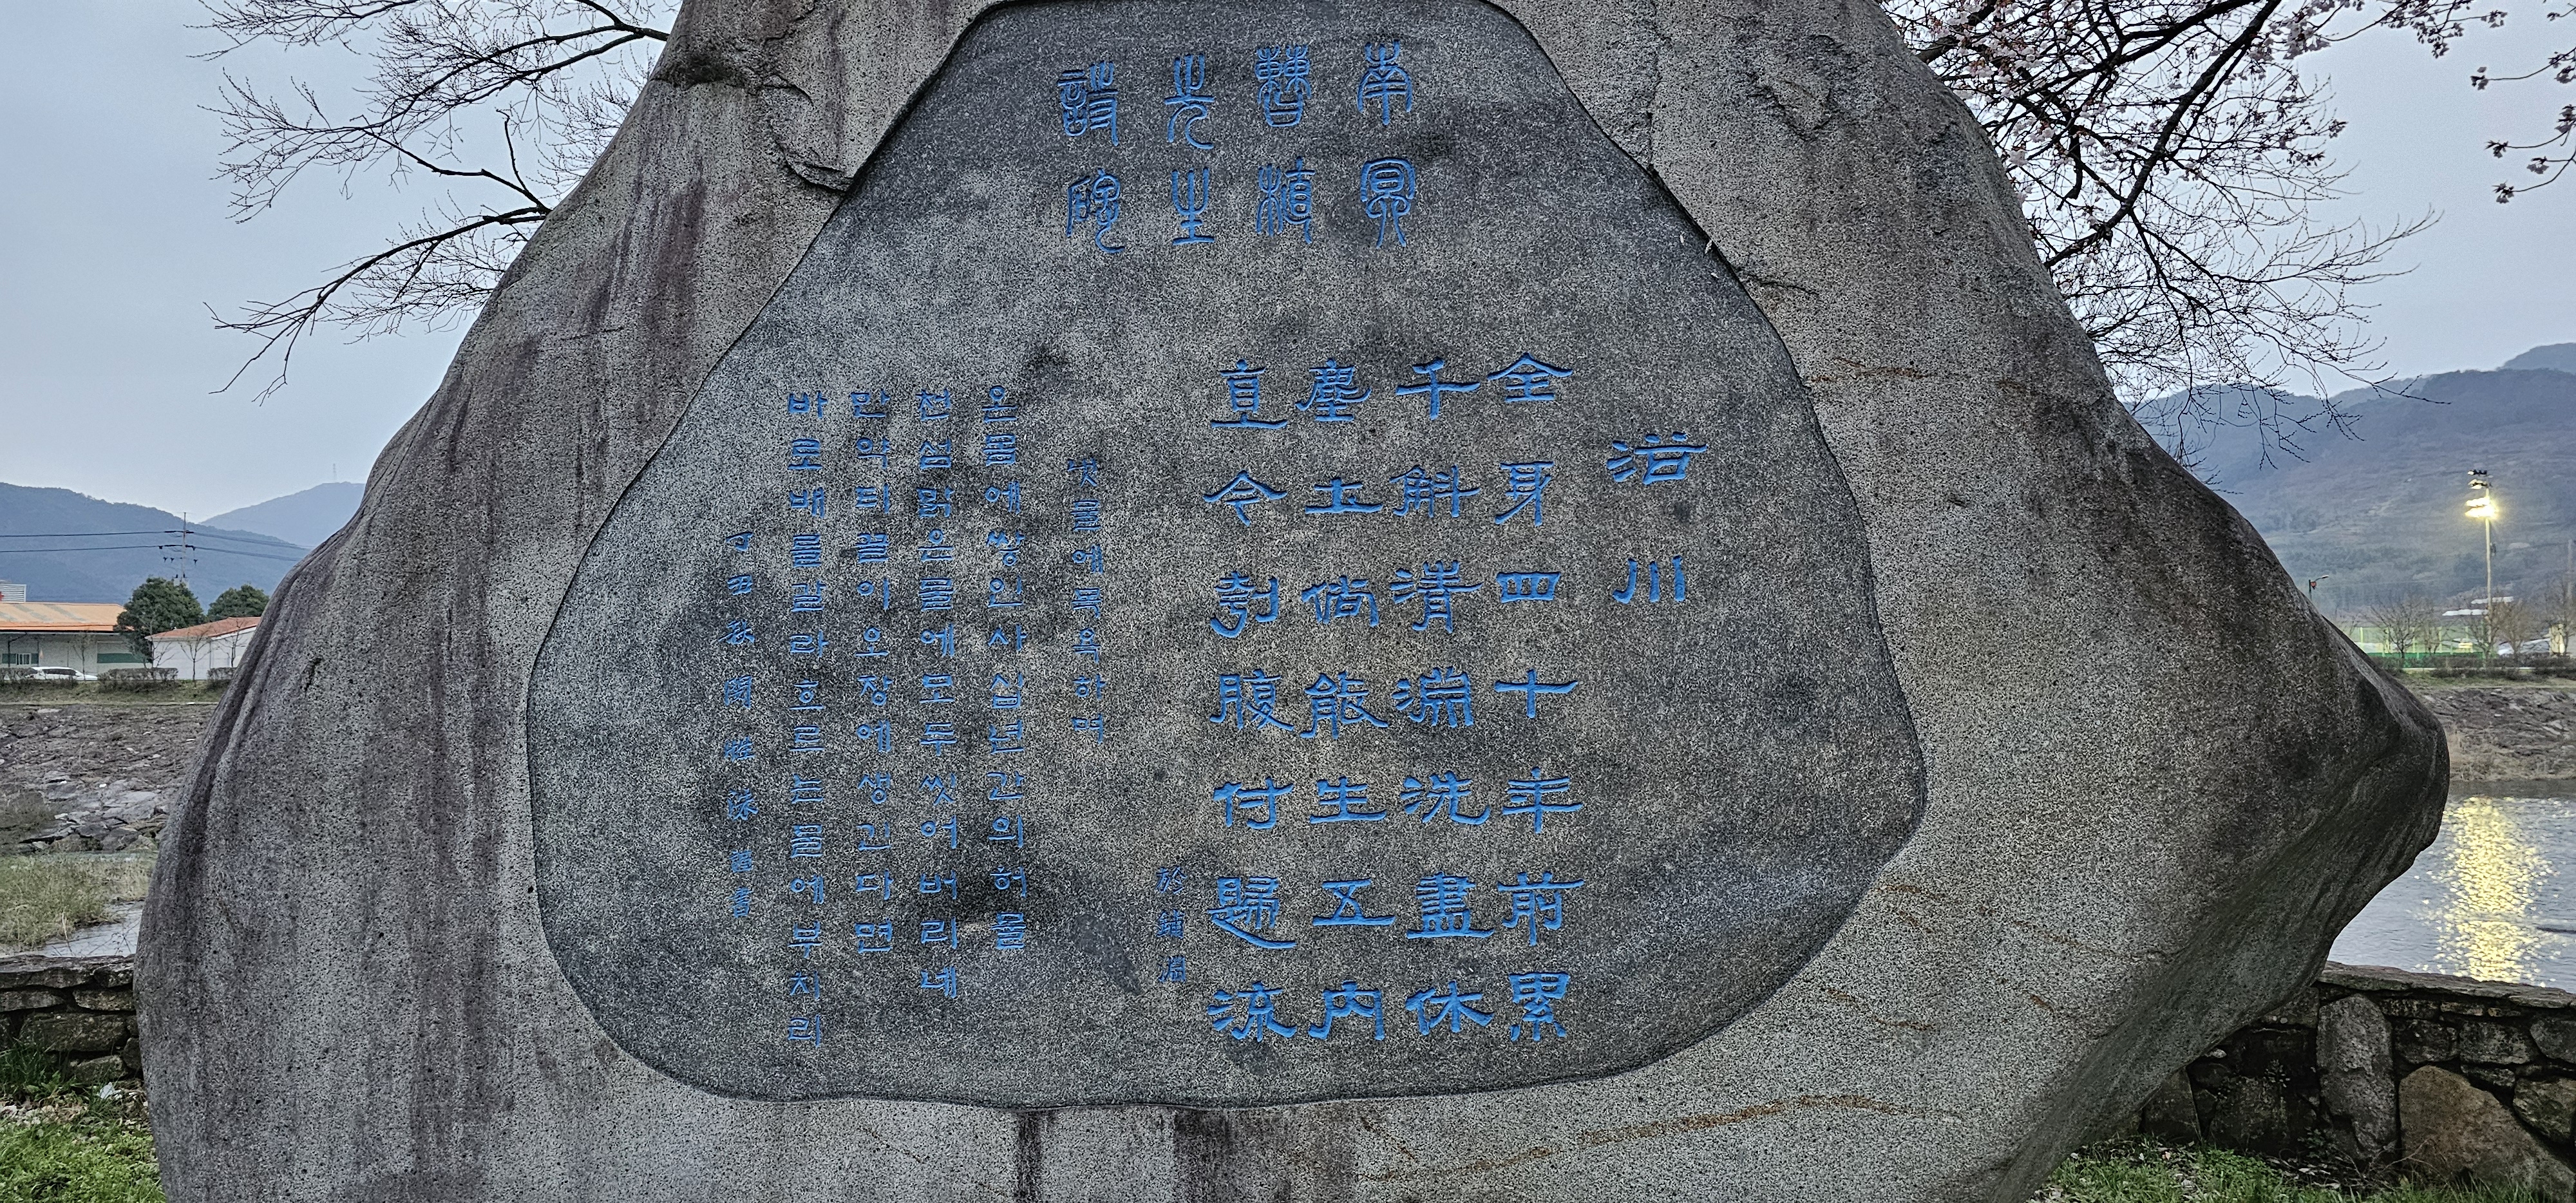 南冥
曺植
先生
詩碑
浴川
全身四十年前累
千斛淸淵洗盡休
塵土倘能生五內
直今刳腹付歸流
於鋪淵
냇물에목욕하며
온몸에쌓인사십년간의허물
천섬맑은물에모두씻어버리네
만약티끌이오장에생긴다면
바로배를갈라흐르는물에부치리
丁丑秋